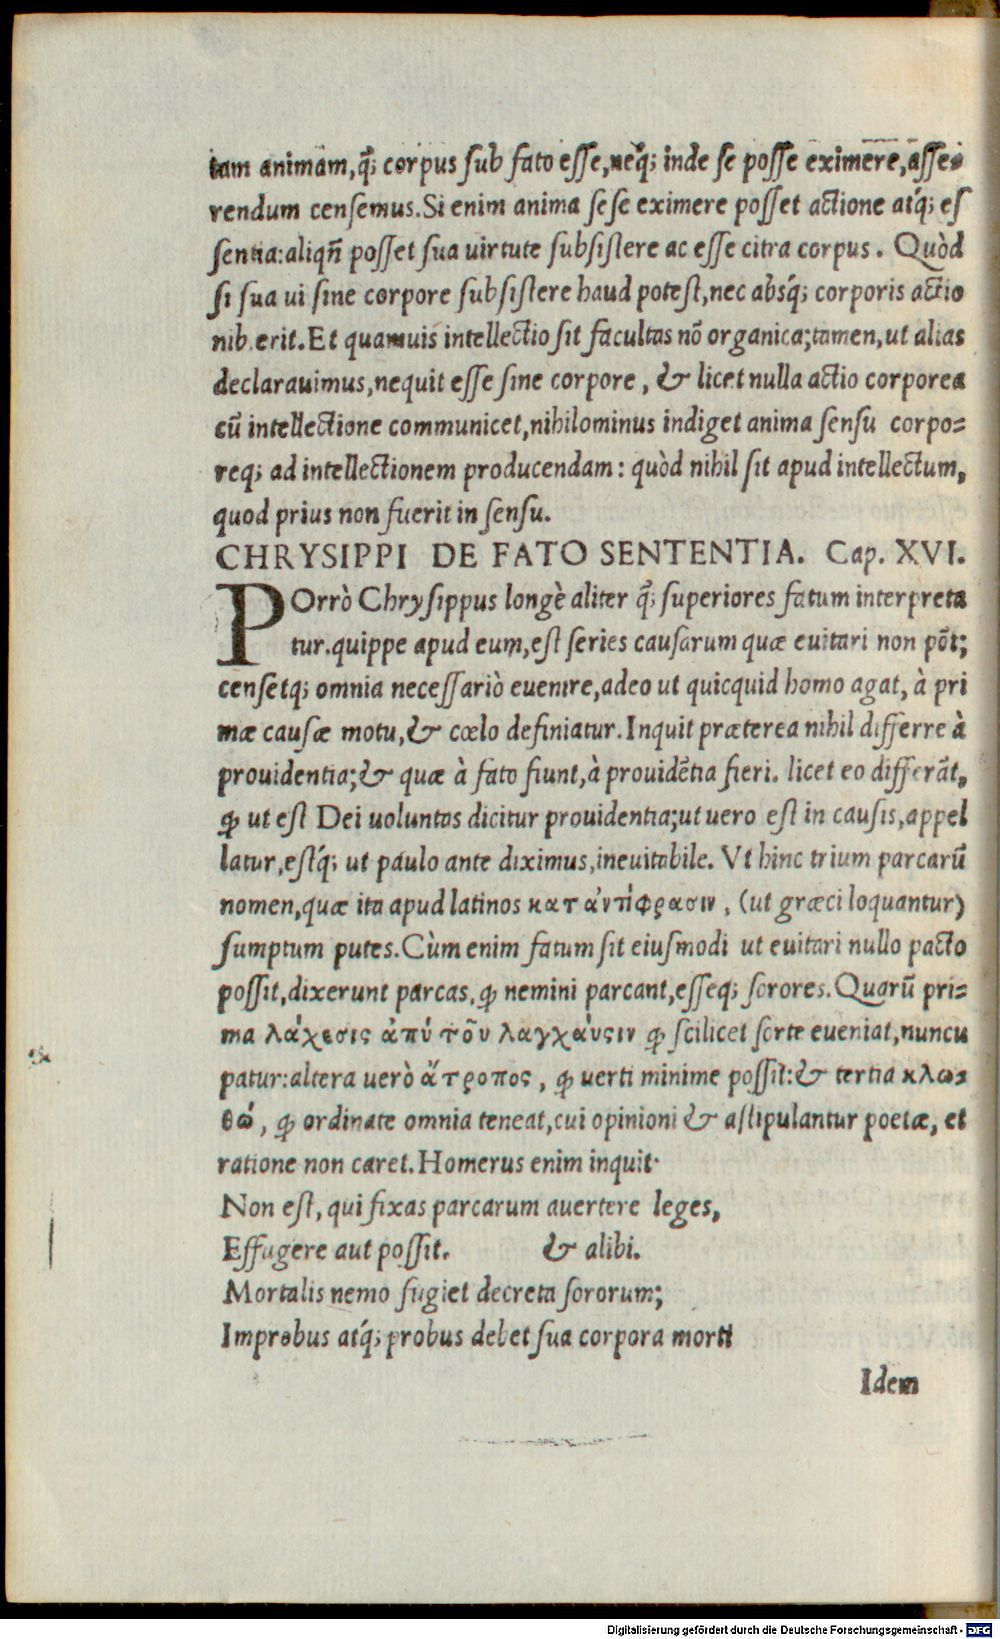 tam animam, q̃; corpus ſub fato eſſe, neq̃; inde ſe poſſe eximere, aſſe-
rendum cenſemus. Si enim anima ſeſe eximere poſſet actione atq́; eſ
ſentia: aliqñ poſſet ſua uirtute ſubſiſtere ac eſſe citra corpus. Quòd
ſi ſua ui ſine corpore ſubſiſtere haud poteſt, nec abſq́; corporis actio
nib. erit. Et quamuis intellectio ſit facultas nõ organica; tamen, ut alias
declarauimus, nequit eſſe ſine corpore, & licet nulla actio corporea
cũ intellectione communicet, nihilominus indiget anima ſenſu corpo=
req; ad intellectionem producendam: quòd nihil ſit apud intellectum,
quod prius non fuerit in ſenſu.
CHRYSIPPI DE FATO SENTENTIA. Cap. XVI.
POrrò Chryſippus longè aliter q̃; ſuperiores fatum interpreta
tur. quippe apud eum, eſt ſeries cauſarum quæ euitari non põt;
cenſetq; omnia neceſſariò euenire, adeo ut quicquid homo agat, à pri
mæ cauſæ motu, & cœlo definiatur. Inquit præterea nihil differre à
prouidentia; & quæ à fato fiunt, à prouidẽtia fieri. licet eo differãt,
ꝙ ut eſt Dei uoluntas dicitur prouidentia; ut uero eſt in cauſis, appel
latur, eſtq́; ut paulo ante diximus, ineuitabile. Vt hinc trium parcarũ
nomen, quæ ita apud latinos κατ ἀντίφρασιν, (ut græci loquantur)
ſumptum putes. Cùm enim fatum ſit eiuſmodi ut euitari nullo pacto
poſſit, dixerunt parcas, ꝙ nemini parcant, eſſeq; ſorores. Quarũ pri=
ma λάχεσις ἀπὺ τοῦ λαγχάνειν ꝙ ſcilicet ſorte eueniat, nuncu
patur: altera uerò ἄτροπος, ꝙ uerti minime poſſit: & tertia κλω=
θώ, ꝙ ordinate omnia teneat, cui opinioni & aſtipulantur poetæ, et
ratione non caret. Homerus enim inquit·
Non eſt, qui fixas parcarum auertere leges,
Effugere aut poſſit. & alibi.
Mortalis nemo fugiet decreta ſororum;
Improbus atq́; probus debet ſua corpora morti
Idem
Digitalisierung gefördert durch die Deutsche Forschungsgemeinschaft - DFG